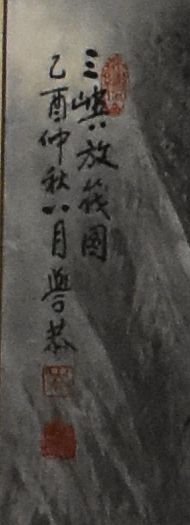 三峽放筏圖
乙酉仲秋八月學恭